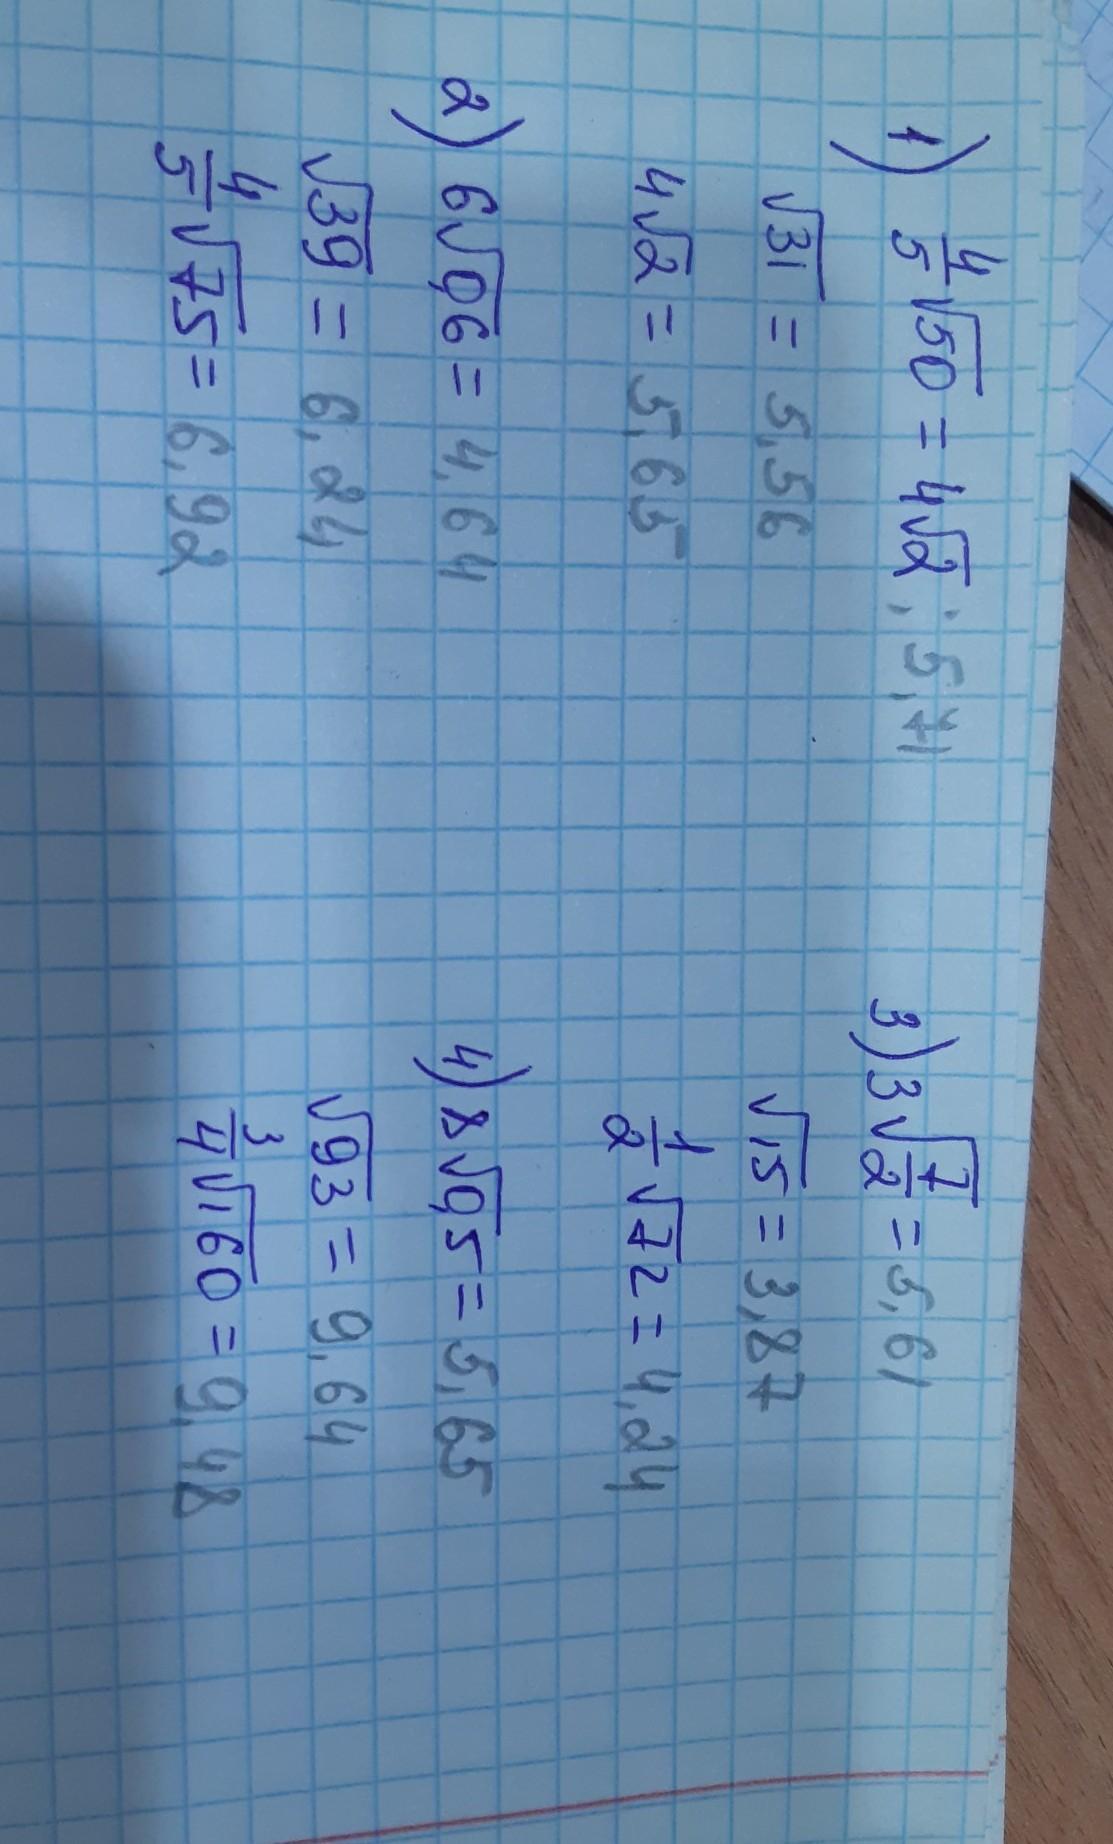 1) 4/5 √50 = 4√2 ; 5,71
√31 = 5,56
4√2 = 5,65
2) 6√0,6 = 4,64
√39 = 6,24
4/5 √75 = 6,92
3) 3√7/2 = 5,61
√15 = 3,87
1/2 √72 = 4,24
4) 8√0,5 = 5,65
√93 = 9,64
3/4 √160 = 9,48